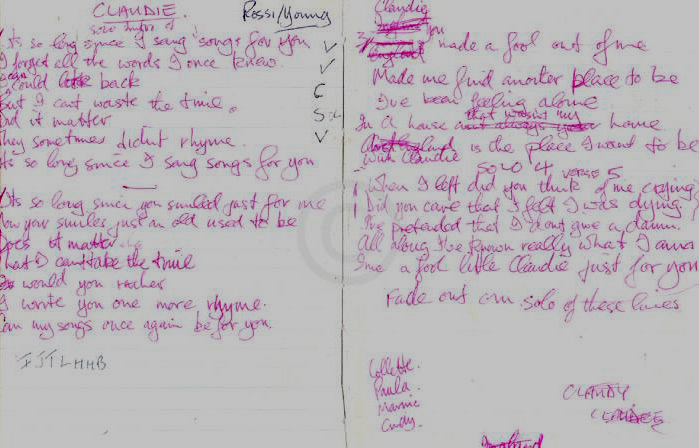 CLAUDIE.
Rossi/Young
solo intro of
Its so long since I sang songs for you
I forget all the words I once knew
could look back
But I cant waste the time.
Did it matter
They sometimes didnt rhyme.
Its so long since I sang songs for you
Its so long since you smiled just for me
Now your smiles just an old used to be
Does it matter
that I cant take the time
Or would you rather
I wrote you one more rhyme.
Can my songs once again be for you.
Claudie
You
made a fool out of me
Made me find another place to be
I've been feeling alone
In a house that wasnt my home
is the place I want to be
with Claudie
SOLO 4 VERSE 5
When I left did you think of me crying
Did you care that I felt I was dying.
I've pretended that I dont give a damn.
All along I've known really what I am
Ime a fool little Claudie just for you
Fade out on solo of these lines
Collette.
Paula.
Marnie
Cindy.
CLAUDY